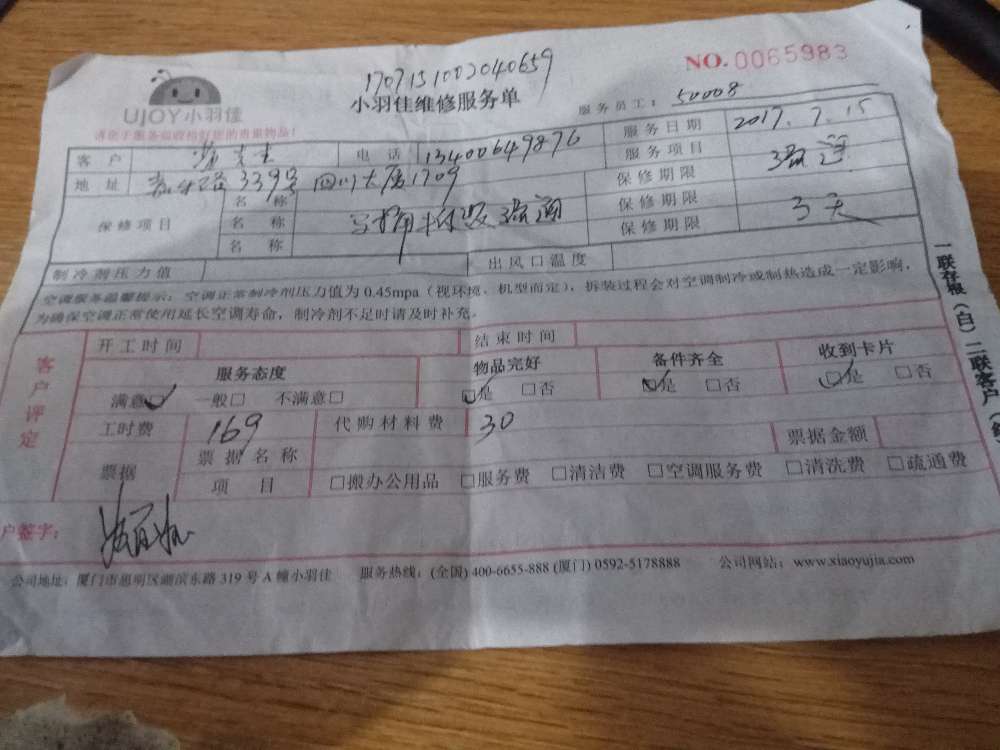 1707151002040659
NO.0065983
UJOY小羽佳
小羽佳维修服务单
服务员工：50008
请您于服务前收拾好您的贵重物品！
客户 电话 13400649876 服务日期 2017.7.15
地址 339号 四川大厦1709 服务项目 疏通
保修项目 名称 保修期限
名称 疏通 保修期限 3天
名称 保修期限
制冷剂压力值 出风口温度
空调服务温馨提示：空调正常制冷剂压力值为0.45mpa（视环境、机型而定），拆装过程会对空调制冷或制热造成一定影响，
为确保空调正常使用延长空调寿命，制冷剂不足时请及时补充。
客户评定
开工时间 结束时间
服务态度 物品完好 备件齐全 收到卡片
满意□ 一般□ 不满意□ □是 □否 □是 □否 □是 □否
工时费 169 代购材料费 30 票据金额
票据 票据名称
项目 □搬办公用品 □服务费 □清洁费 □空调服务费 □清洗费 □疏通费
户签字：
公司地址：厦门市思明区湖滨东路319号A幢小羽佳 服务热线：(全国) 400-6655-888 (厦门) 0592-5178888 公司网站：www.xiaoyujia.com
一联存根（白）二联客户（